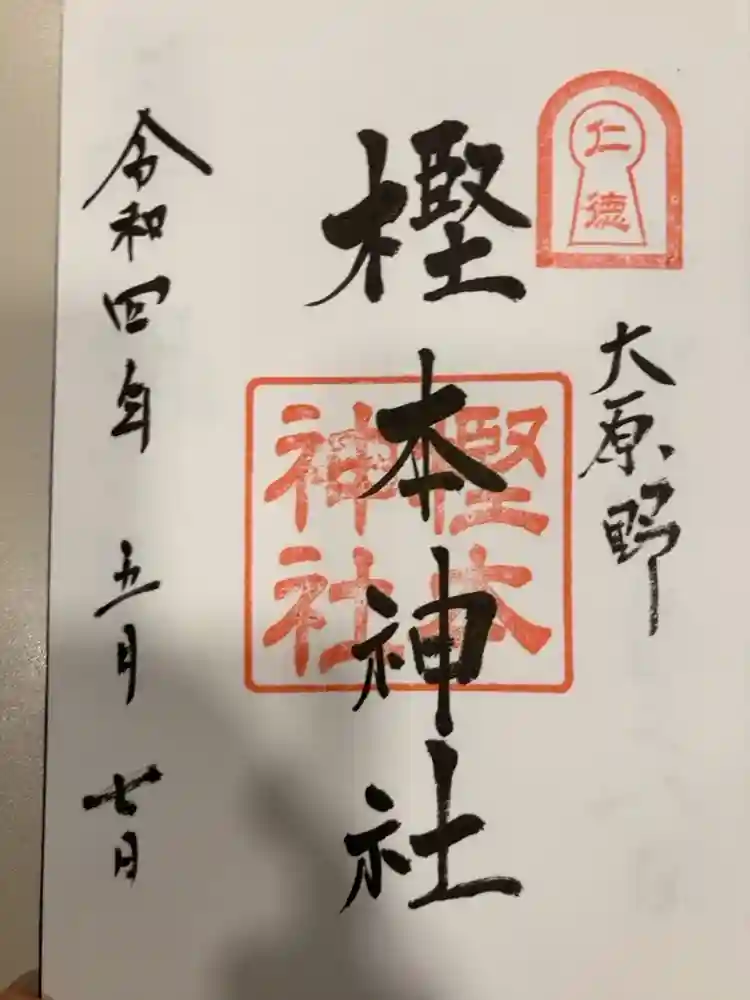 仁徳
大原野
樫本神社
樫本
神社
令和四年 五月 七日